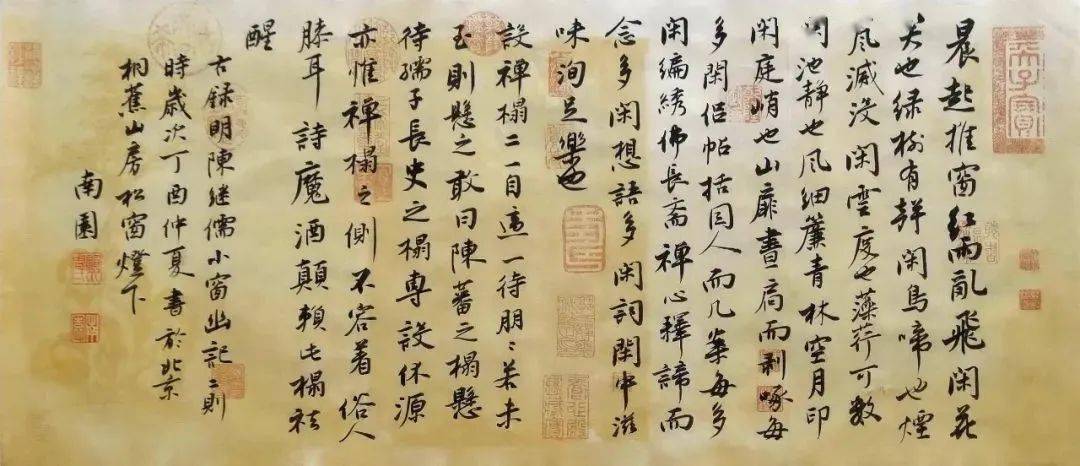 晨起推窗紅雨亂飛閑花
笑也绿樹有聲閑鳥啼也煙
嵐滅没閑雲度也藻荇可數
閑池靜也風細簾青林空月印
閑庭峭也山扉晝扃而剥啄每
多閑侣帖括因人而几案每多
閑編綉佛長斋禪心釋諦而
念多閑想語多閑詞閑中滋
味洵足樂也
設禪榻二一自適一待朋〻若未
至則懸之敢曰陳蕃之榻懸
待孺子長史之榻專設休源
亦惟禪榻之側不容着俗人
膝耳詩魔酒顛賴此榻祛
醒
古録明陳継儒小窗幽記二則
時歲次丁酉仲夏書於北京
桐蕉山房松窗燈下
南園